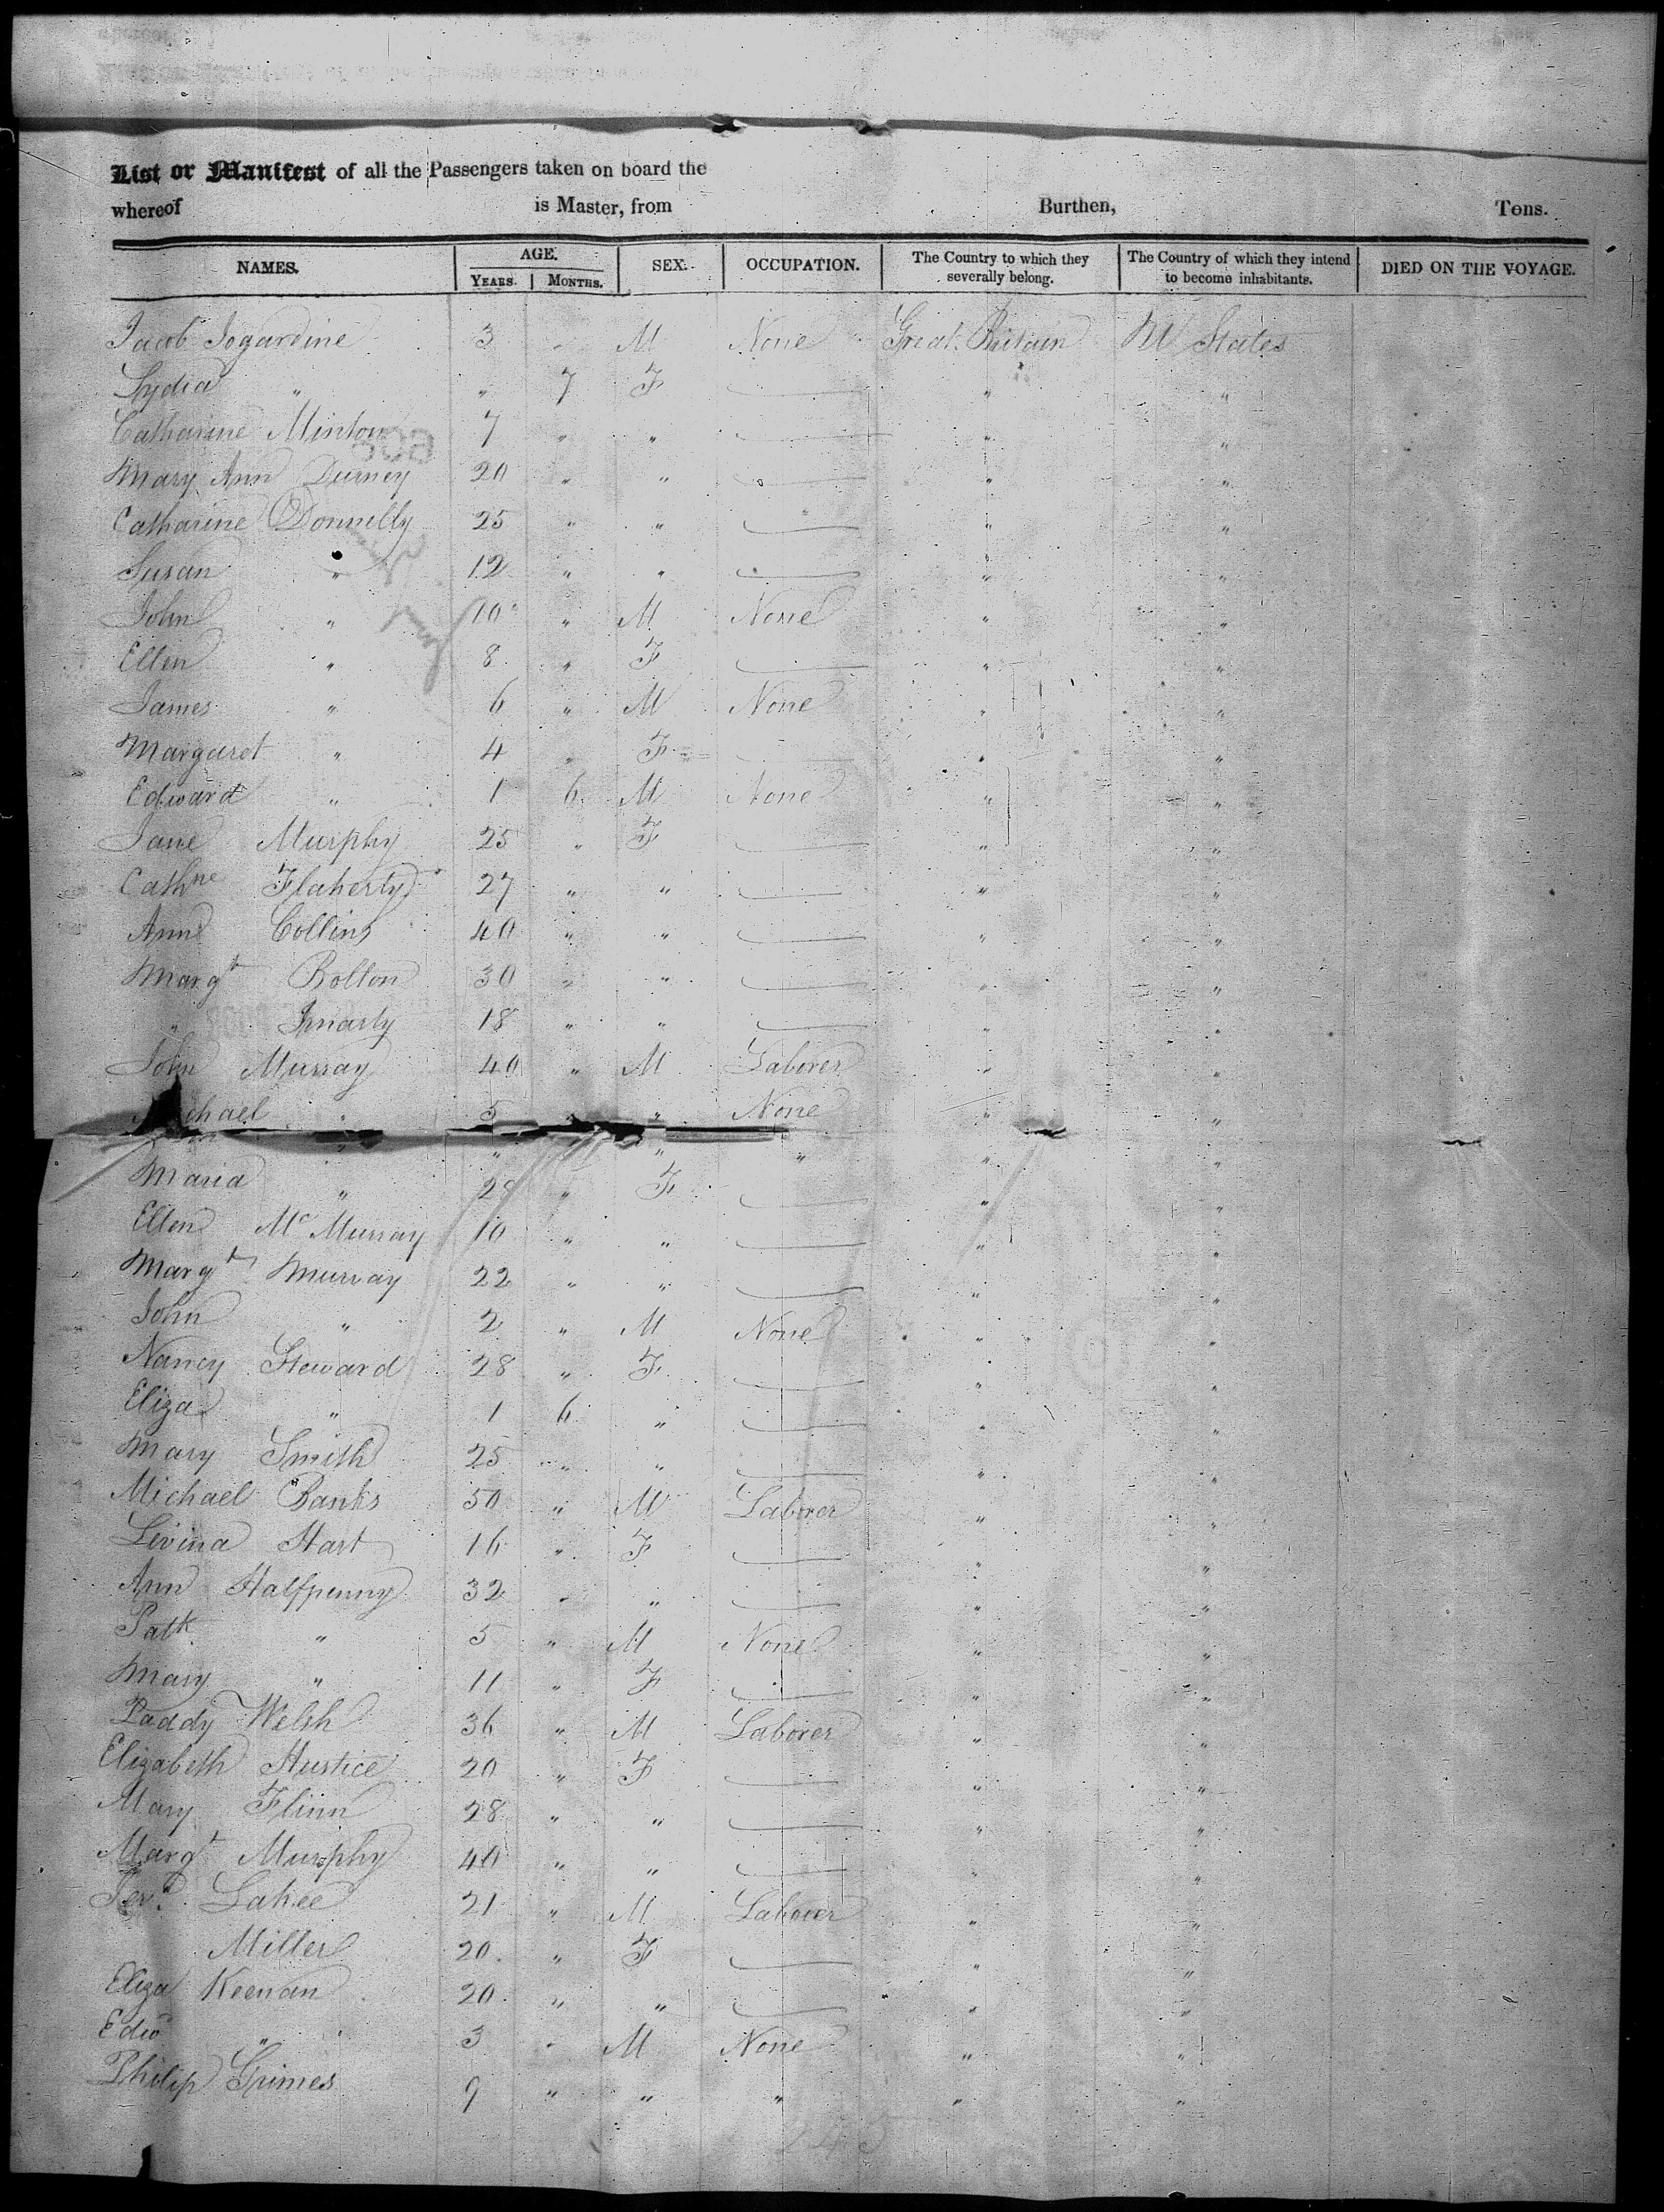 List or Manifest of all the Passengers taken on board the
whereof is Master, from Burthen, Tons.
NAMES. AGE. YEARS. MONTHS. SEX. OCCUPATION. The Country to which they severally belong. The Country of which they intend to become inhabitants. DIED ON THE VOYAGE.
Jacob Jogardine 3 " M None Great Britain U States
Lydia " " 7 F — " "
Catharine Minton 7 " " — " "
Mary Ann Durney 20 " " — " "
Catharine Donnelly 25 " " — " "
Susan " 12 " " — " "
John " 10 " M None " "
Ellen " 8 " F — " "
James " 6 " M None " "
Margaret " 4 " F — " "
Edward " 1 6 M None " "
Jane Murphy 25 " F — " "
Cathne Flaherty 27 " " — " "
Ann Collins 40 " " — " "
Margt Bolton 30 " " — " "
" 18 " " — " "
John Murray 40 " M Laborer " "
Michael " 5 " " None " "
" " " " " "
Maria " " F — " "
Ellen Mc Murray 10 " " — " "
Margt Murray 22 " " — " "
John " 2 " M None " "
Nancy Steward 28 " F — " "
Eliza " 1 6 " — " "
Mary Smith 25 " " — " "
Michael Banks 50 " M Laborer " "
Levina Hart 16 " F — " "
Ann Halfpenny 32 " " — " "
Patk " 5 " M None " "
Mary " 11 " F — " "
Paddy Welsh 36 " M Laborer " "
Elizabeth Hustice 20 " F — " "
Mary Flinn 28 " " — " "
Margt Murphy 40 " " — " "
Jerd Lahee 21 " M Laborer " "
Miller 20 " F — " "
Eliza Keenan 20 " " — " "
Edwd " 3 " M None " "
Philip Grimes 9 " " " " "
245